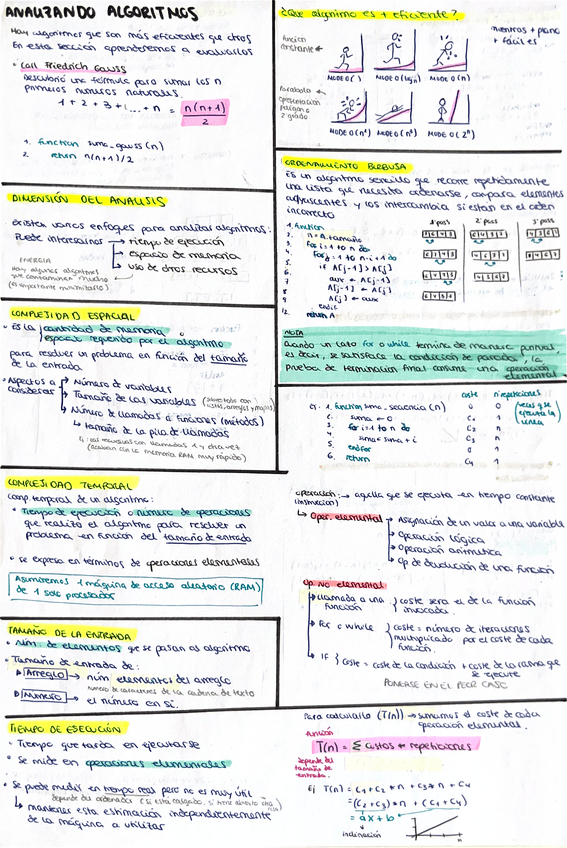 ANALIZANDO ALGORITMOS
Hay algoritmos que son más eficientes que otros
En esta sección aprenderemos a evaluarlos
• Carl Friedrich Gauss
Descubrió una fórmula para sumar los n
primeros números naturales.
1 + 2 + 3 + ... + n = n(n+1)
2
1. function suma_gauss (n)
2. return n(n+1)/2
DIMENSIÓN DEL ANALISIS
Existen varios enfoques para analizar algoritmos:
Puede interesarnos → tiempo de ejecución
→ espacio de memoria
→ uso de otros recursos
ENERGIA
Hay algunos algoritmos
que contaminan mucho
(es importante minimizarlo)
COMPLEJIDAD ESPACIAL
• Es la cantidad de memoria o
espacio requerido por el algoritmo
para resolver un problema en función del tamaño
de la entrada
• Aspectos a considerar → Número de variables
→ Tamaño de las variables
→ Número de llamadas a funciones (métodos)
↳ tamaño de la pila de llamadas
COMPLEJIDAD TEMPORAL
Comp temporal de un algoritmo:
• Tiempo de ejecución o número de operaciones
que realiza el algoritmo para resolver un
problema en función del tamaño de entrada
• se expresa en términos de operaciones elementales
Asumiremos 1 máquina de acceso aleatorio (RAM)
de 1 solo procesador
TAMAÑO DE LA ENTRADA
• núm. de elementos que se pasan al algoritmo
• Tamaño de entrada de:
→ Arreglo → núm elementos del arreglo
número de caracteres de la cadena de texto
→ Número → el número en sí.
TIEMPO DE EJECUCIÓN
• Tiempo que tarda en ejecutarse
• Se mide en operaciones elementales
• Se puede medir en tiempo real pero no es muy útil
↳ mantener esta estimación independientemente
de la máquina a utilizar
¿Que algoritmo es + eficiente?
función
constante
mientras + plano
+ fácil es.
MODE O(1) MODE O(log n) MODE O(n)
Parábola
2º grado
MODE O(n²) MODE O(n³) MODE O(2ⁿ)
ORDENAMIENTO BURBUJA
Es un algoritmo sencillo que recorre repetidamente
una lista que necesita ordenarse, compara elementos
adyacentes y los intercambia si están en el orden
incorrecto
1º pass 2º pass 3º pass
1. function
2. n = A.tamaño
3. for i = 1 to n do
4. for j = 1 to n-i+1 do
5. if A[j-1] > A[j]
6. aux ← A[j-1]
7. A[j-1] ← A[j]
8. A[j] ← aux
9. endif
12. return A
NOTA
Cuando un lazo for o while termina de manera puntual,
es decir, se satisface la condición de parada, la
prueba de terminación final consume una operación
elemental
coste nº repeticiones
Ej: 1. function suma_secuencia (n) 0 0
2. suma ← 0 C₁ 1
3. for i = 1 to n do C₂ n
4. suma = suma + i C₃ n
5. endfor 0 1
6. return C₄ 1
(veces q se
ejecuta la
línea)
operación: → aquella que se ejecuta en tiempo constante
(instrucción)
↳ Oper. elemental → Asignación de un valor a una variable
→ Operación lógica
→ Operación aritmética
→ Op de devolución de una función
Op. No elemental
→ Llamada a una función } coste será el de la función
invocada.
→ For o While } coste = número de iteraciones
multiplicado por el coste de cada
función.
→ IF } coste = coste de la condición + coste de la rama que
se ejecute
PONERSE EN EL PEOR CASO
Para calcularlo (T(n)) → sumamos el coste de cada
operación elemental.
función
T(n) = Σ costos * repeticiones
depende del
tamaño de
entrada.
Ej T(n) = C₁ + C₂ * n + C₃ * n + C₄
= (C₂ + C₃) * n + (C₁ + C₄)
= ax + b
↳ inclinación
n